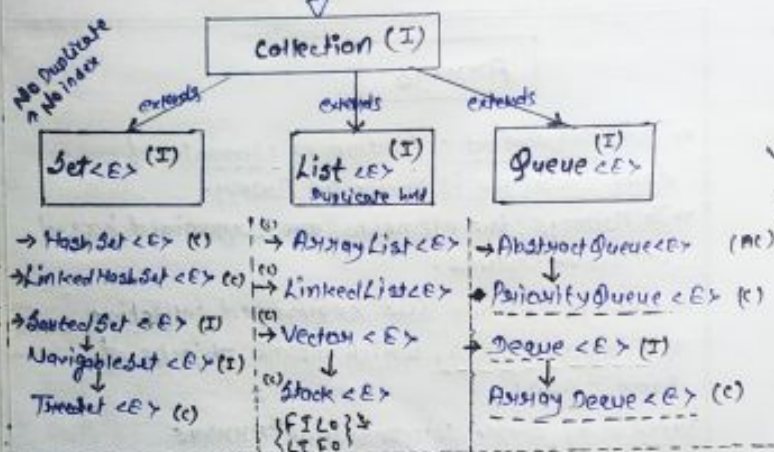 Collection (I)
No Duplicate
^ No index
extends
extends
extends
Set<E> (I)
List <E> (I)
Duplicate hold
Queue <E> (I)
→ HashSet <E> (C)
→ LinkedHashSet <E> (C)
→ SortedSet <E> (I)
NavigableSet <E> (I)
TreeSet <E> (C)
(C) → ArrayList <E>
(C) → LinkedList <E>
(C) → Vector <E>
(C) Stack <E>
{FILO}
{LIFO
→ AbstractQueue<E> (AC)
PriorityQueue <E> (C)
→ Deque <E> (I)
Array Deque <E> (C)